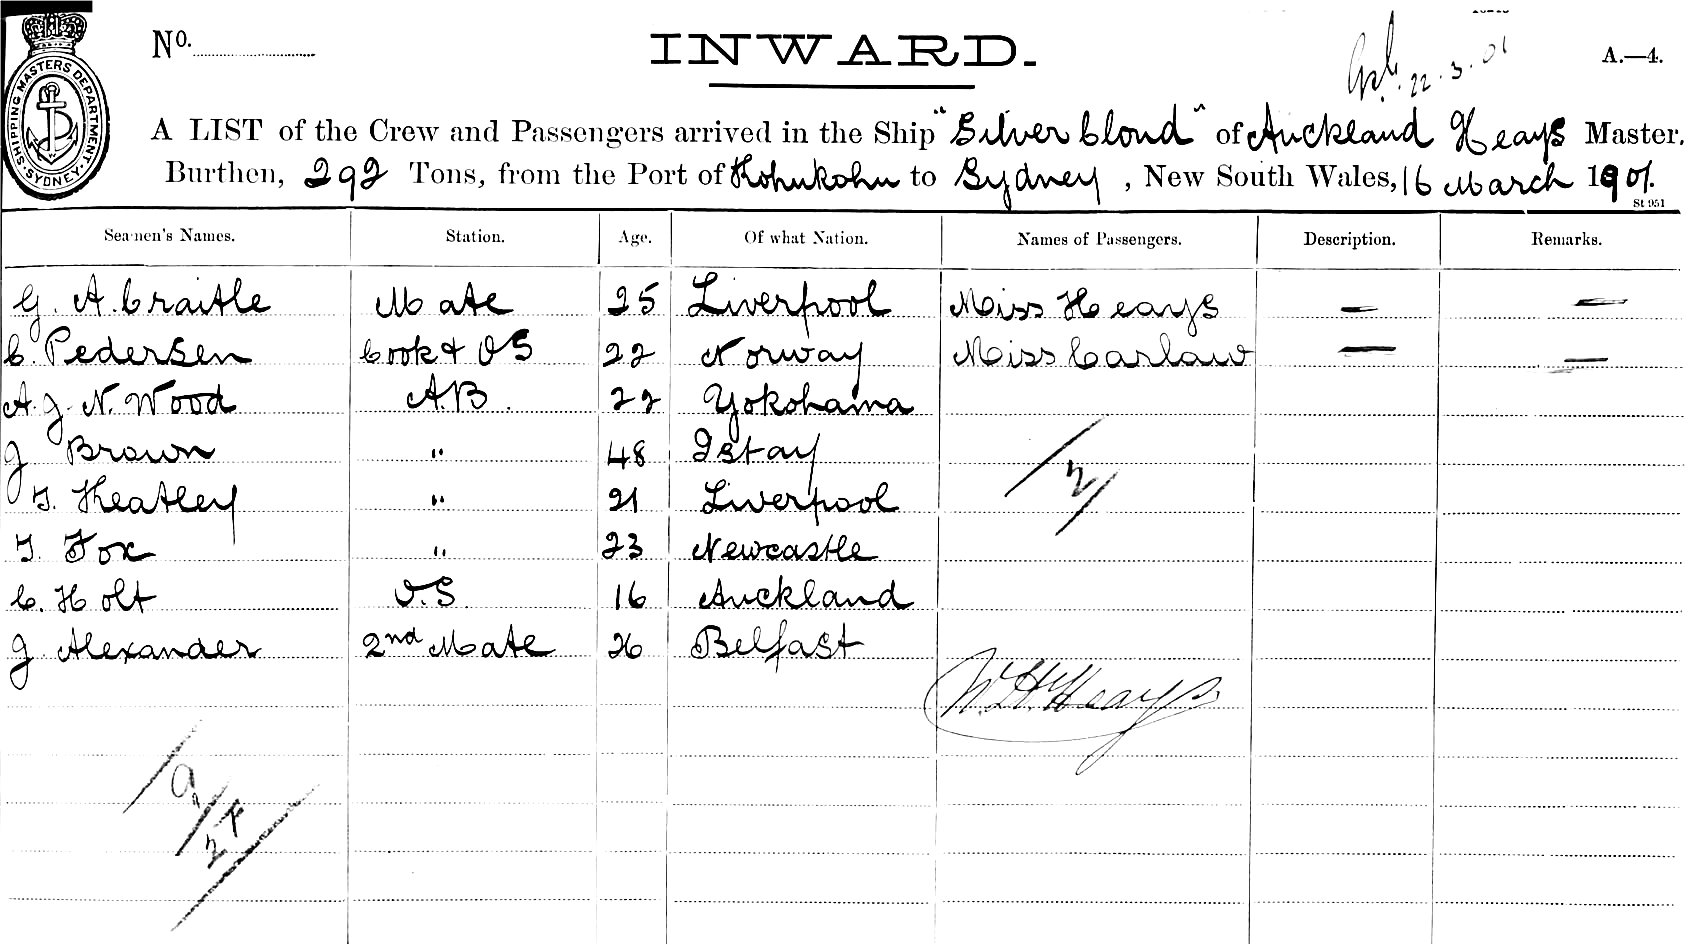 SHIPPING MASTERS DEPARTMENT
SYDNEY
No.
INWARD.
22.3.01
A.—4.
A LIST of the Crew and Passengers arrived in the Ship "Silver Cloud" of Auckland Heays Master,
Burthen, 292 Tons, from the Port of Kohukohu to Sydney, New South Wales, 16 March 1901.
St 951
Seamen's Names. Station. Age. Of what Nation. Names of Passengers. Description. Remarks.
G. A. Craitle Mate 25 Liverpool Miss Heays — —
C. Pedersen Cook & OS 22 Norway Miss Carlaw — —
A. J. N. Wood A.B. 22 Yokohama
J Brown " 48 Istay
T. Keatley " 21 Liverpool
T. Fox " 23 Newcastle
C. Holt O.S. 16 Auckland
J Alexander 2nd Mate 26 Belfast
2
W. H. Heays
9
2